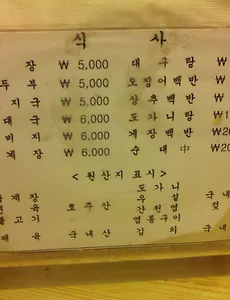 식 사
장 ₩ 5,000 대 구 탕 ₩
두 부 ₩ 5,000 오 징 어 백 반 ₩
지 국 ₩ 5,000 상 추 백 반 ₩
대 국 ₩ 6,000 도 가 니 탕 ₩1
비 지 ₩ 6,000 게 장 백 반 ₩20
계 장 ₩ 6,000 순 대 中 ₩20
< 원 산 지 표 시 >
도 가 니
개 장 우 설 국 내
육 호 주 산 간 천 엽
고 기 염 통 구 이
제 육 국 내 산 김 치 국 내